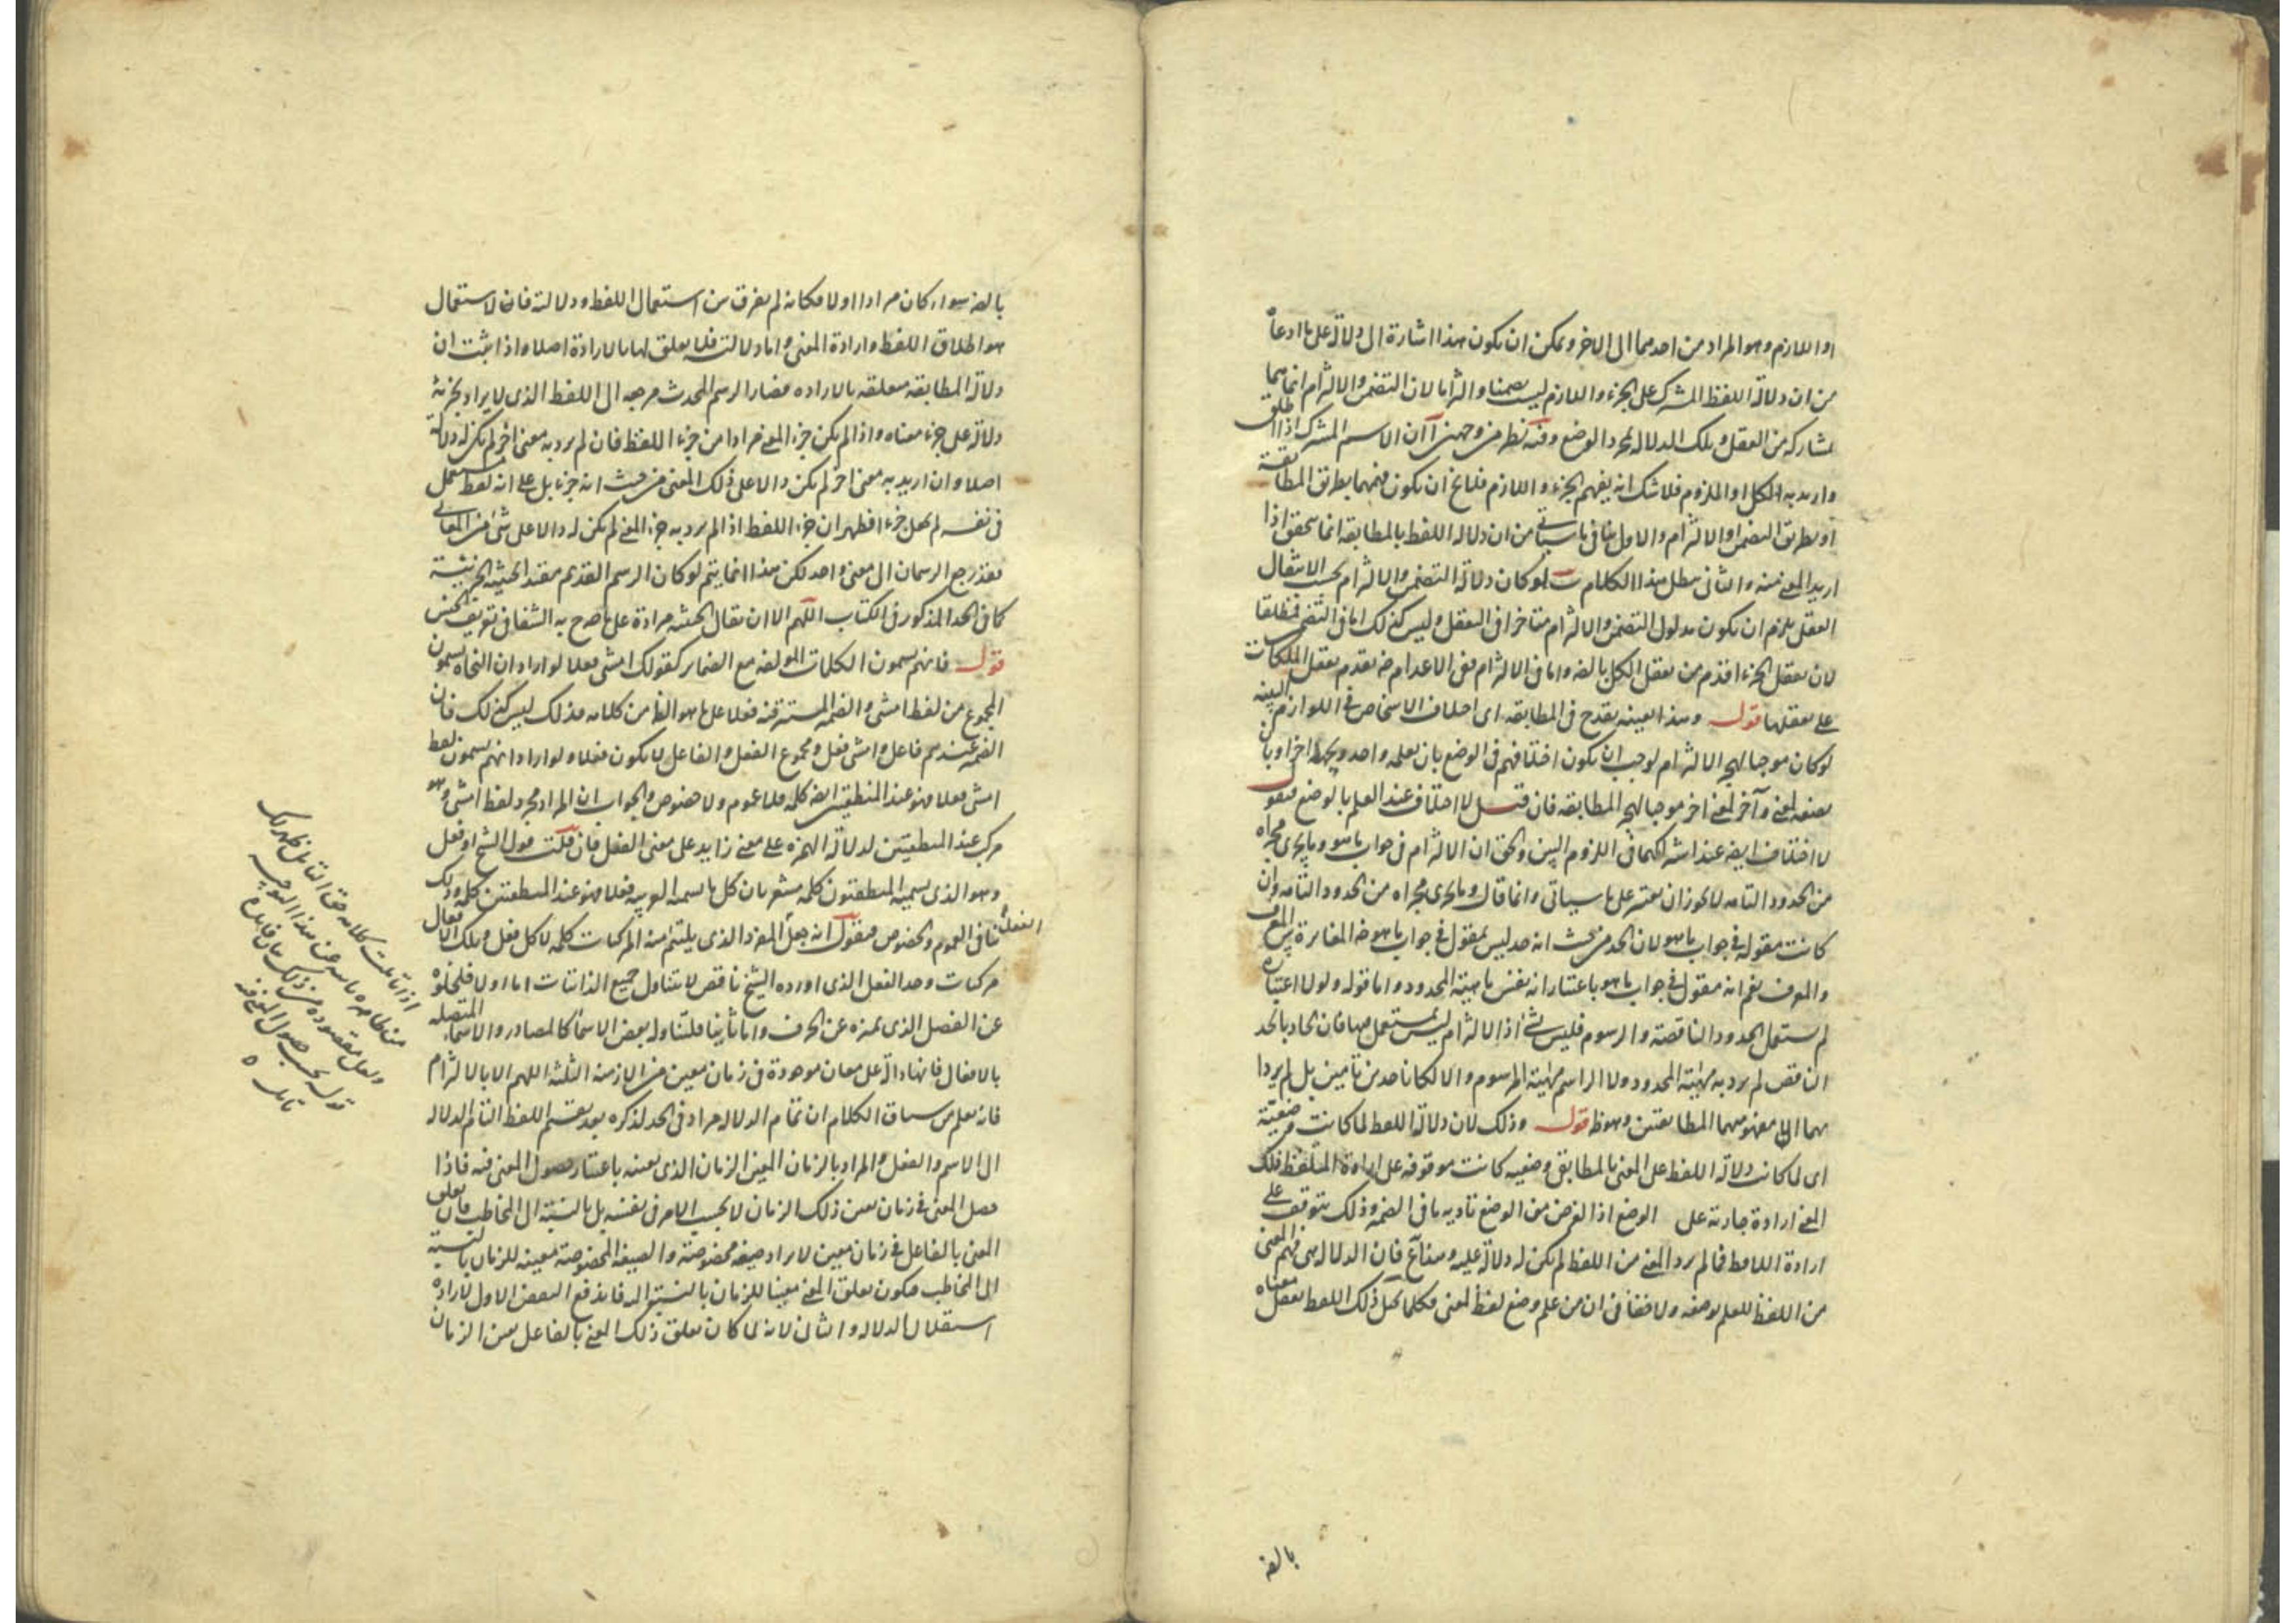 او اللازم وهو المراد من احدهما الى الاخر ويمكن ان يكون هذا اشارة الى دلالة على ما ادعاه
من ان دلالة اللفظ المشترك على الجزء واللازم ليست تضمنا والتزاما لان التضمن والالتزام انما هما
بمشاركة من العقل وتلك الدلالة بمجرد الوضع وفيه نظر من وجهين آ ان الاسم المشترك اذا اطلق
واريد به الكل او الملزوم فلا شك انه يفهم الجزء واللازم فلا يخ ان يكون فهمهما بطريق المطابقة
او بطريق التضمن والالتزام والاول ينافي ما سياتي من ان دلالة اللفظ بالمطابقة انما يتحقق اذا
اريد المعنى منه والثاني يبطل هذا الكلام ب لو كان دلالة التضمن والالتزام بحسب الانتقال
العقلي يلزم ان يكون مدلول التضمن والالتزام متاخرا في التعقل وليس كذلك اما في التضمن فمطلقا
لان تعقل الجزء اقدم من تعقل الكل بالضرورة واما في الالتزام ففي الاعدام ضرورة تقدم تعقل الملكات
على تعقلها قوله وهذا بعينه يقدح في المطابقة اى اختلاف الاشخاص في اللوازم البينة
لو كان موجبا لهجر الالتزام لوجب ان يكون اختلافهم في الوضع بان يعلمه واحد ويجهله اخر او بان
يضعه لمعنى وآخر لمعنى اخر موجبا لهجر المطابقة فان قيل لا اختلاف عند العلم بالوضع فنقول
لا اختلاف ايضا عند اشتراكهما في اللزوم البين والحق ان الالتزام في جواب ما هو وما يجرى مجراه
من الحدود التامة لا يجوز ان يعتبر على ما سياتي وانما قال وما يجرى مجراه من الحدود التامة وان
كانت مقولة في جواب ما هو لان الحد من حيث انه حد ليس بمقول في جواب ما هو ضرورة المغايرة بين المعرف
والمعرف نعم انه مقول في جواب ما هو باعتبار انه نفس ماهية المحدود واما قوله ولولا اعتباره
لم يستعمل الحدود الناقصة والرسوم فليس بشئ اذ الالتزام ليس بمستعمل فيها فان الحاد بالحد
الناقص لم يرد به مهية المحدود ولا الراسم مهية المرسوم والا لكانا حدين تامين بل لم يردا
بهما الا مفهومهما المطابقيين وهو ظ قوله وذلك لان دلالة اللفظ لما كانت وضعية
اى لما كانت دلالة اللفظ على المعنى المطابقي وضعية كانت موقوفة على ارادة المتلفظ ذلك
المعنى ارادة جارية على الوضع اذ الغرض من الوضع تادية ما في الضمير وذلك يتوقف على
ارادة اللافظ فما لم يرد المعنى من اللفظ لم يكن له دلالة عليه وهنا آ فان الدلالة هي فهم المعنى
من اللفظ للعلم بوضعه ولا خفا في ان من علم وضع لفظ لمعنى فكلما تخيل ذلك اللفظ تعقل معناه
بالضر
بالضرورة سواء كان مرادا او لا فكانه لم يفرق بين استعمال اللفظ ودلالته فان الاستعمال
هو اطلاق اللفظ وارادة المعنى واما دلالته فلا تعلق لها بالارادة اصلا واذا ثبت ان
دلالة المطابقة متعلقة بالارادة فصار الرسم المحدث مرجعه الى اللفظ الذى لا يراد بجزئه
دلالة على جزء معناه واذا لم يكن جزء المعنى مرادا من جزء اللفظ فان لم يرد به معنى اخر لم يكن له دلالة
اصلا وان اريد به معنى اخر لم يكن دالا على ذلك المعنى من حيث انه جزء بل على انه لفظ مستعمل
في نفسه لم يجعل جزءا فظهر ان جزء اللفظ اذا لم يرد به جزء المعنى لم يكن له دالا على شئ من المعاني
فقد رجع الرسمان الى معنى واحد لكن هذا انما يتم لو كان الرسم القديم مقيدا لحيثية الجزئية
كما في الحد المذكور في الكتاب اللهم الا ان يقال الحيثية مرادة على ما صرح به الشفا في تعريف الجنس
قوله فانهم يسمون الكلمات المؤلفة مع الضماير كقولك امشى فعلا لو اراد ان النحاة يسمون
المجموع من لفظ امشى والضمير المستتر فيه فعلا على ما هو الظ من كلامه فذلك ليس كذلك فان
الضمير عندهم فاعل وامشى فعل ومجموع الفعل والفاعل لا يكون فعلا ولو اراد انهم يسمون لفظ
امشى فعلا فهو عند المنطقيين ايضا كلمة فلا عموم ولا خصوص والجواب ان المراد مجرد لفظ امشى وهو
مركب عند المنطقيين لدلالة الهمزة على معنى زايد على معنى الفعل فان قلت قول الشيخ او فعل
وهو الذى يسميه المنطقيون كلمة مشعر بان كل ما يسميه العربية فعلا فهو عند المنطقيين كلمة وذلك
ينافي العموم والخصوص فنقول انه جعل المفرد الذى يلتئم منه المركبات كلمة لا كل فعل وتلك الافعال
الفعل
مركبات وحد الفعل الذى اورده الشيخ ناقص لا يتناول جميع الذاتيات اما اولا فلخلوه
عن الفصل الذى يميزه عن الحرف واما ثانيا فلتناوله بعض الاسما كالمصادر والاسما المتصلة
بالافعال فانها دالة على معان موجودة في زمان معين من الازمنة الثلثة اللهم الا بالالتزام
فانه يعلم من سياق الكلام ان تمام الدلالة مراد في الحد لذكره بعد تقسيم اللفظ التام الدلالة
الى الاسم والفعل والمراد بالزمان المعين الزمان الذى يعينه باعتبار حصول المعنى فيه فاذا
حصل المعنى في زمان يعين ذلك الزمان لا بحسب الامر في نفسه بل بالنسبة الى المخاطب فان تعلق
المعنى بالفاعل في زمان معين لا يراد صيغة مخصوصة والصيغة المخصوصة معينة للزمان بالنسبة
الى المخاطب فيكون تعلق المعنى معينا للزمان بالنسبة اليه فاندفع النقض الاول لارادة
استقلال الدلالة والثاني لانه لما كان تعلق ذلك المعنى بالفاعل يعين الزمان
اذا تاملت كلامه حق التامل ظهر لك
من ظاهره ما هذا التوجيه
ولعل مقصوده من ذلك
قوله بحسب حصول المعنى فيه
تامل